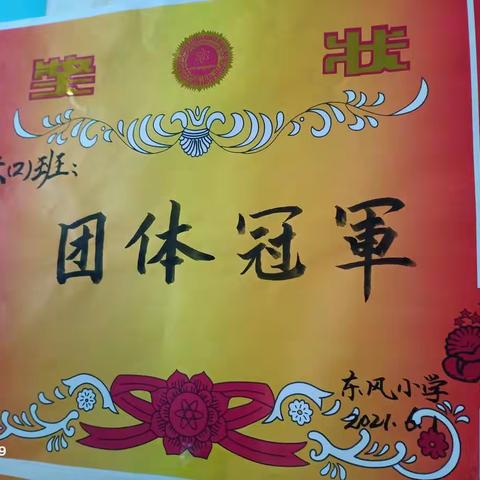 奖状
六(2)班:
团体冠軍
东风小学
2021.6.1